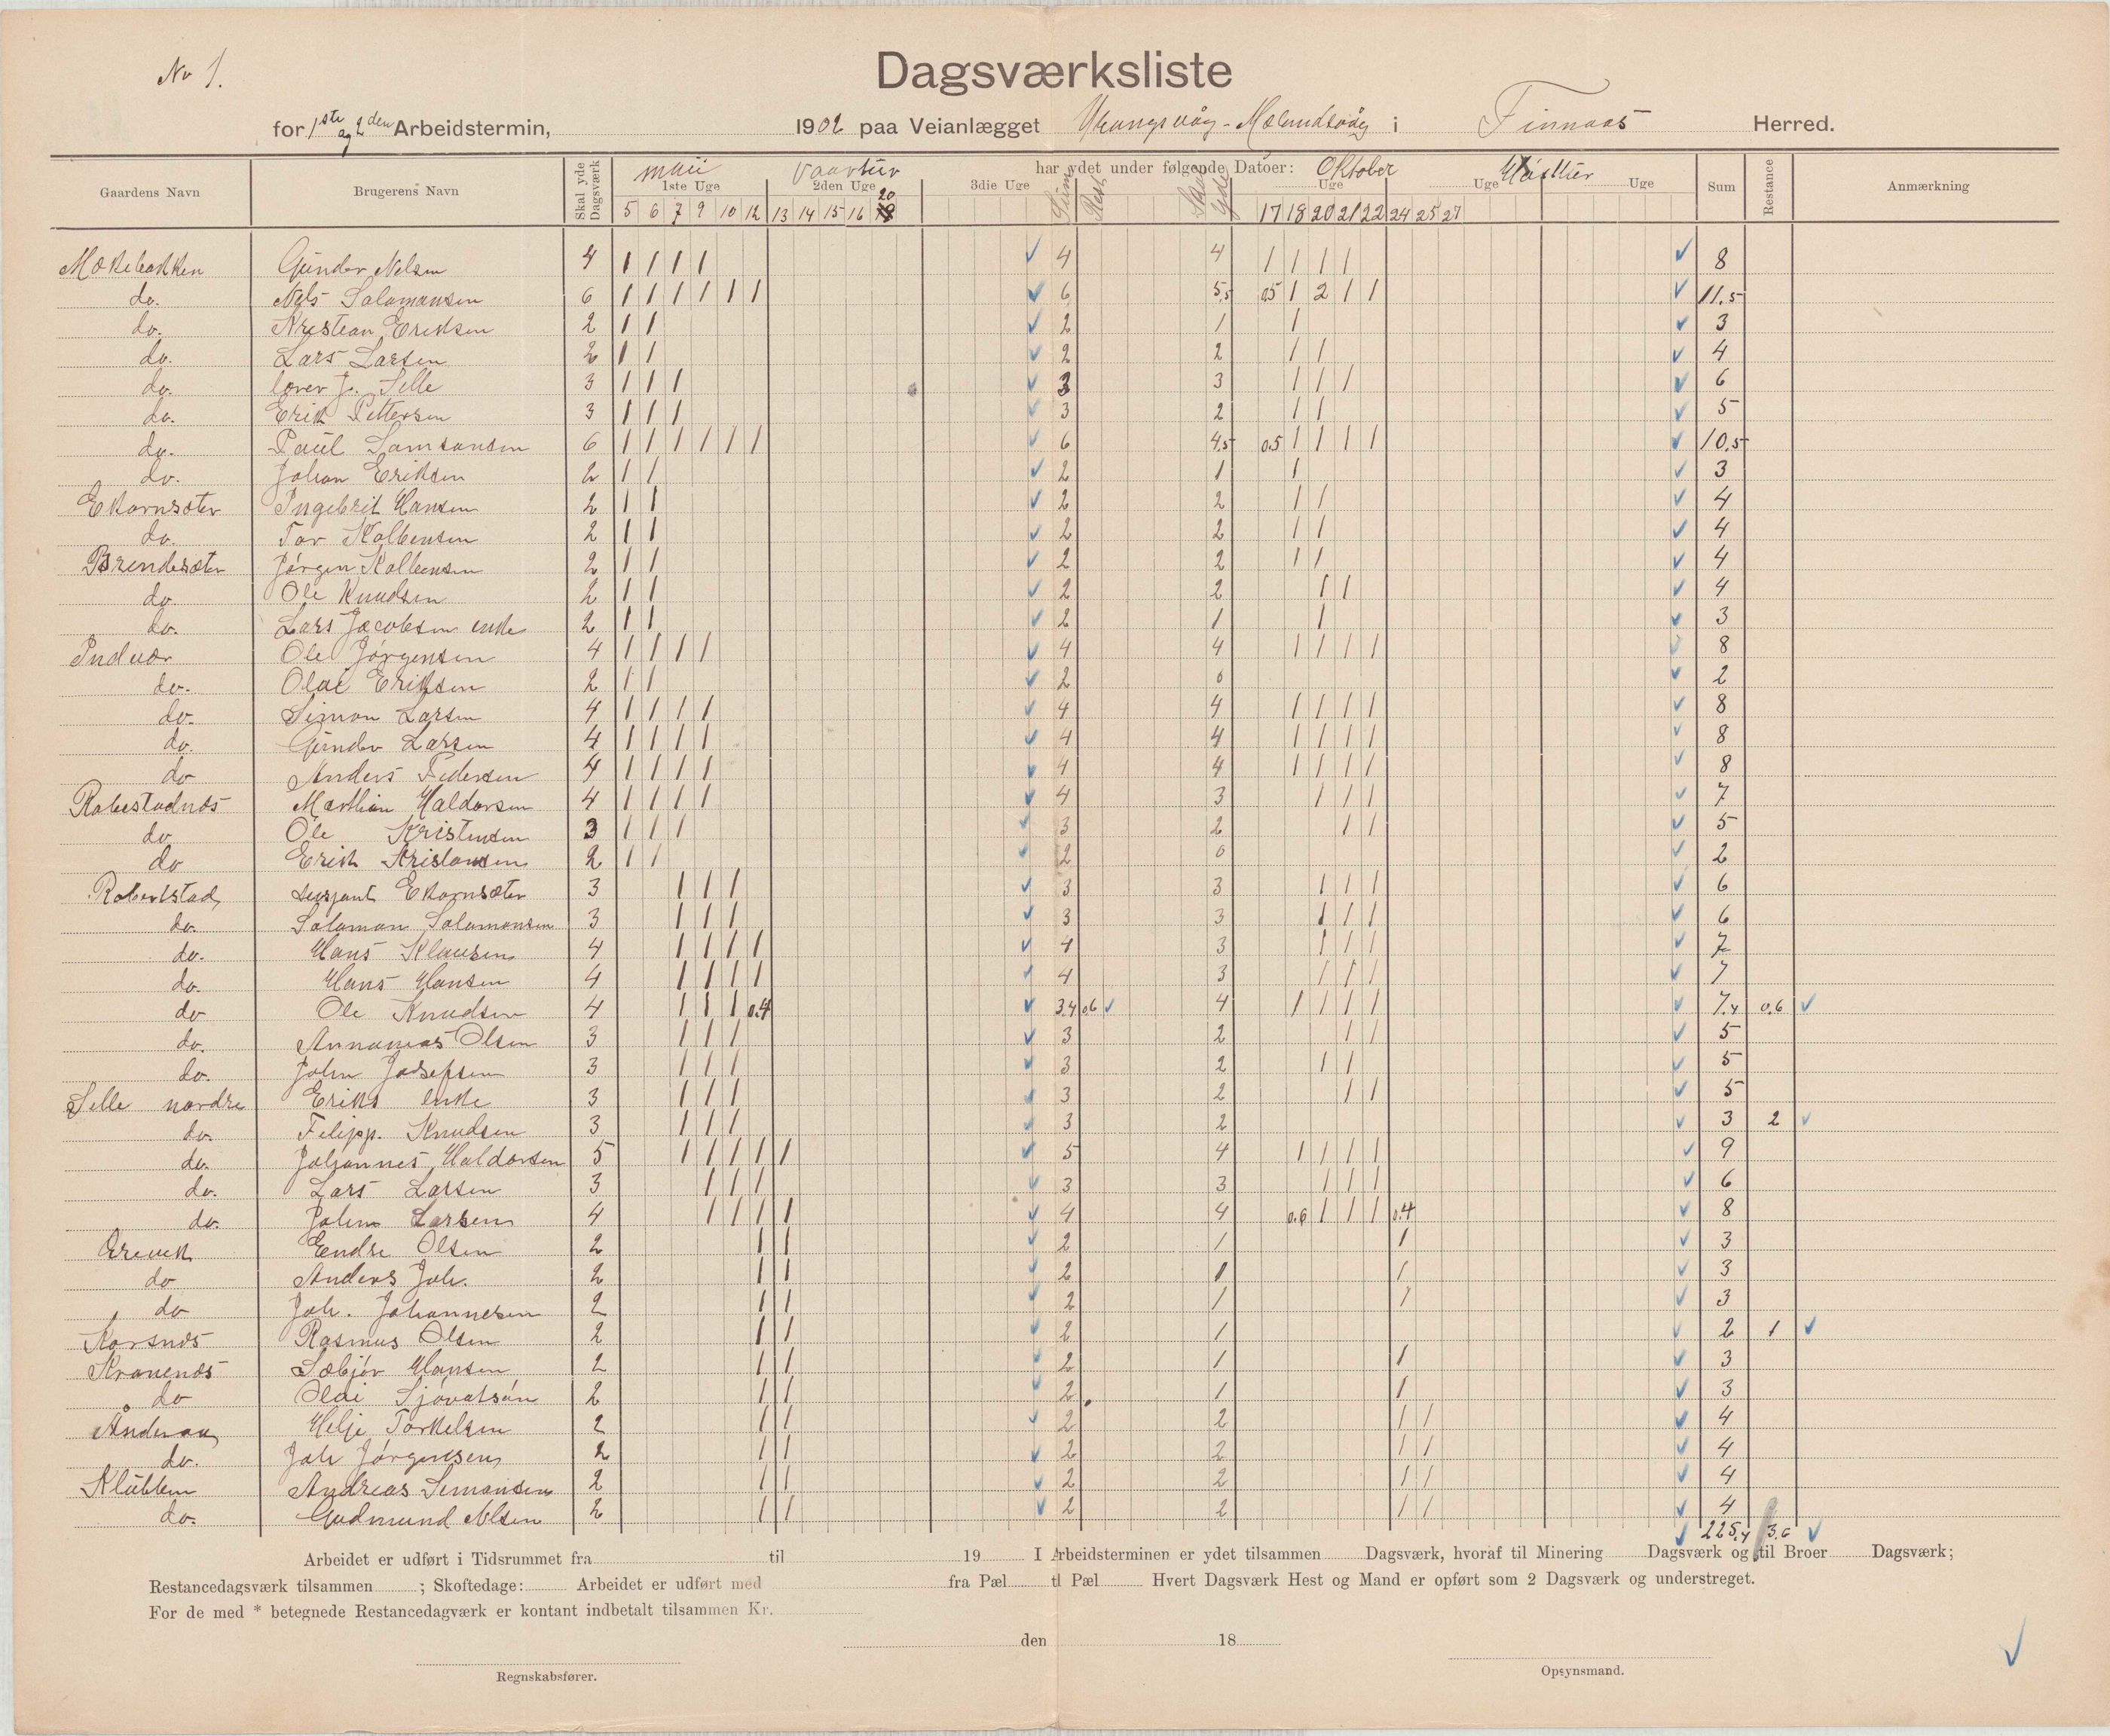 No 1.
Dagsværksliste
for 1ste og 2den Arbeidstermin, 1902 paa Veianlægget Urangsvåg - Mælandsvåg i Finnaas Herred.
Gaardens Navn Brugerens Navn Skal yde Dagsværk maii Vaartur har ydet under følgende Datoer: Oktober Høsttur Sum Restance Anmærkning
1ste Uge 2den Uge 3die Uge Sum Rest Skal yde Uge Uge Uge
5 6 7 9 10 12 13 14 15 16 20 17 18 20 21 22 24 25 27
Mökebakken Gunder Nelsen 4 1 1 1 1 4 4 1 1 1 1 8
do. Nels Salamonsen 6 1 1 1 1 1 1 6 5,5 0,5 1 2 1 1 11,5
do. Kristian Eriksen 2 1 1 2 1 1 3
do. Lars Larsen 2 1 1 2 2 1 1 4
do. lærer J. Selle 3 1 1 1 3 3 1 1 1 6
do. Erik Pettersen 3 1 1 1 3 2 1 1 5
do. Paul Samsonsen 6 1 1 1 1 1 1 6 4,5 0,5 1 1 1 1 10,5
do. Johan Eriksen 2 1 1 2 1 1 3
Ekornsæter Ingebrit Hansen 2 1 1 2 2 1 1 4
do. Tor Kolbensen 2 1 1 2 2 1 1 4
Brendesæter Jørgen Kolbensen 2 1 1 2 2 1 1 4
do. Ole Knudsen 2 1 1 2 2 1 1 4
do. Lars Jacobsen enke 2 1 1 2 1 1 3
Indvær Ole Jørgensen 4 1 1 1 1 4 4 1 1 1 1 8
do. Olai Eriksen 2 1 1 2 0 2
do. Simon Larsen 4 1 1 1 1 4 4 1 1 1 1 8
do. Gunder Larsen 4 1 1 1 1 4 4 1 1 1 1 8
do Anders Pedersen 4 1 1 1 1 4 4 1 1 1 1 8
Robestadnæs Matthias Haldorsen 4 1 1 1 1 4 3 1 1 1 7
do Ole Kristensen 3 1 1 1 3 2 1 1 5
do Erik Kristansen 2 1 1 2 0 2
Robertstad sersjant Ekornsæter 3 1 1 1 3 3 1 1 1 6
do. Salamon Salamonsen 3 1 1 1 3 3 1 1 1 6
do. Hans Klausen 4 1 1 1 1 4 3 1 1 1 7
do. Hans Hansen 4 1 1 1 1 4 3 1 1 1 7
do Ole Knudsen 4 1 1 1 0.4 3.4 0.6 4 1 1 1 1 7.4 0.6
do. Annanias Olsen 3 1 1 1 3 2 1 1 5
do. John Josefsen 3 1 1 1 3 2 1 1 5
Selle nordre Eriks enke 3 1 1 1 3 2 1 1 5
do. Filipp. Knudsen 3 1 1 1 3 2 3 2
do. Johannes Haldorsen 5 1 1 1 1 1 5 4 1 1 1 1 9
do. Lars Larsen 3 1 1 1 3 3 1 1 1 6
do. John Larsen 4 1 1 1 1 4 4 0.6 1 1 1 0.4 8
Grevik Endre Olsen 2 1 1 2 1 1 3
do Anders Joh. 2 1 1 2 1 1 3
do Joh. Johannesen 2 1 1 2 1 1 3
Korsnæs Rasmus Olsen 2 1 1 2 1 2 1
Kranenæs Sæbjør Hansen 2 1 1 2 1 1 3
do Olai Sjovatsøn 2 1 1 2 1 1 3
Helje Torkelsen 2 1 1 2 2 1 1 4
do. Joh Jørgensen 2 1 1 2 2 1 1 4
Klubben Andreas Simonsen 2 1 1 2 2 1 1 4
do. Gudmund Nelsen 2 1 1 2 2 1 1 4
225,4 3,6
Arbeidet er udført i Tidsrummet fra til 19 I Arbeidsterminen er ydet tilsammen Dagsværk, hvoraf til Minering Dagsværk og til Broer Dagsværk;
Restancedagsværk tilsammen ; Skoftedage: Arbeidet er udført med fra Pæl tl Pæl Hvert Dagsværk Hest og Mand er opført som 2 Dagsværk og understreget.
For de med * betegnede Restancedagværk er kontant indbetalt tilsammen Kr.
den 18
Regnskabsfører. Opsynsmand.